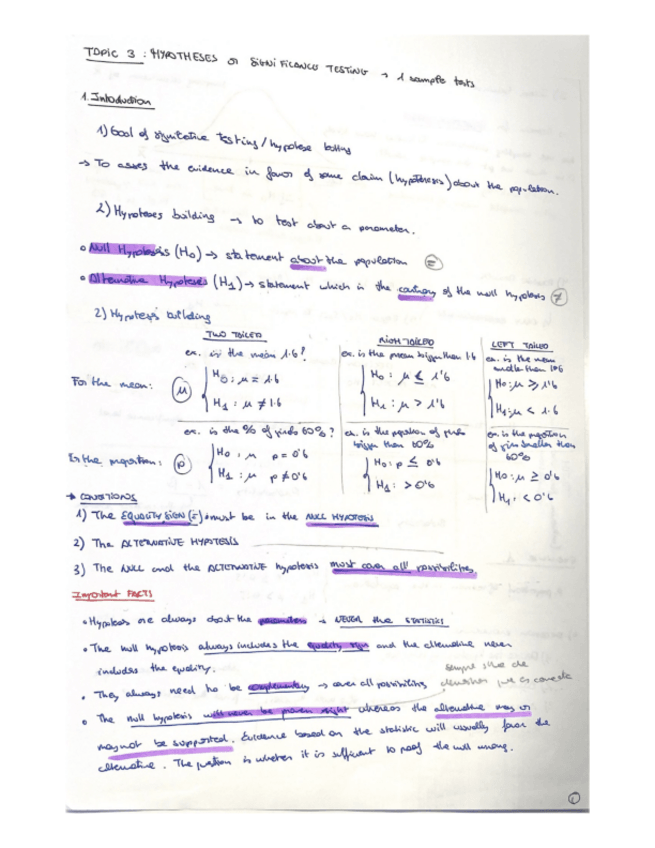 TOPIC 3 : HYPOTHESES OR SIGNIFICANCE TESTING → 1 sample tests
1. Introduction
1) Goal of significative testing / hypothese testing
→ To asses the evidence in favor of some claim (hypothesis) about the population.
2) Hypoteses building → to test about a parameter.
• Null Hypothesis (H0) → statement about the population =
• Alternative Hypoteses (H1) → statement which in the contrary of the null hypotesis ≠
2) Hypotesis building
TWO TAILED RIGH TAILED LEFT TAILED
ex. is the mean 1.6? ex. is the mean bigger than 1.6 ex. is the mean smaller than 1.6
For the mean: μ
H0: μ = 1.6 H0: μ ≤ 1'6 H0: μ ≥ 1'6
H1: μ ≠ 1.6 H1: μ > 1'6 H1: μ < 1.6
ex. is the % of girls 60%? ex. is the proportion of girls bigger than 60% ex. is the proportion of girls smaller than 60%
the proportion: p
H0: μ p = 0'6 H0: p ≤ 0'6 H0: μ ≥ 0'6
H1: μ p ≠ 0'6 H1: > 0'6 H1: < 0'6
→ CONDITIONS
1) The EQUALITY SIGN (=) must be in the NULL HYPOTESIS
2) The ALTERNATIVE HYPOTESIS
3) The NULL and the ALTERNATIVE hypotesis must cover all possibilities
Important FACTS
• Hypotesis are always about the parameters → NEVER the STATISTICS
• The null hypotesis always includes the equality sign and the alternative never
includes the equality.
• They always need to be complementary → cover all possibilities
• The null hypotesis will never be proven right whereas the alternative may or
may not be supported. Evidence based on the statistic will usually favor the
alternative. The question is wheter it is sufficient to proof the null wrong.
1